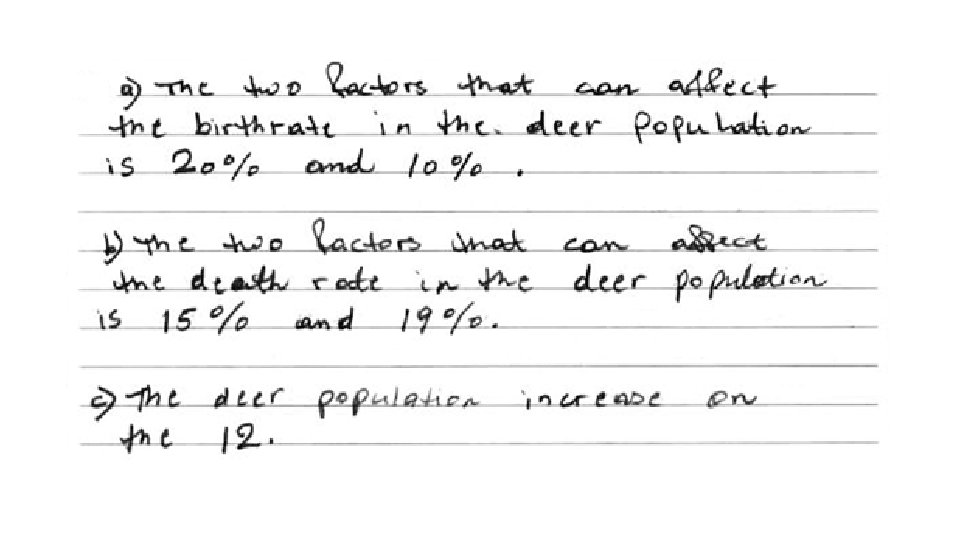 a) The two factors that can affect
the birthrate in the. deer population
is 20% and 10%.
b) The two factors that can affect
the death rate in the deer population
is 15% and 19%.
c) The deer population increase on
the 12.